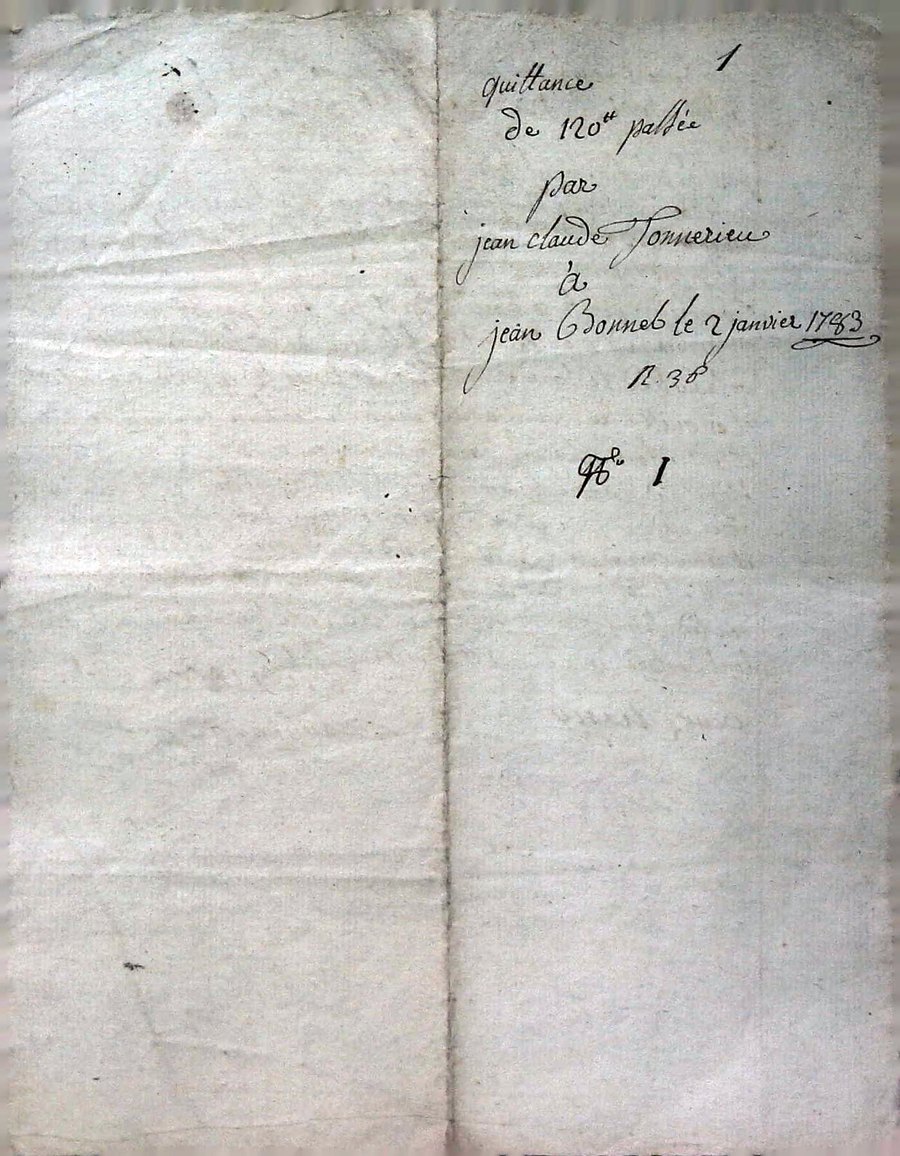 1
quittance
de 120ᵗᵗ passée
par
jean claude Tonnerieu
à
jean Bonnet le 2 janvier 1783
R. 36ˢ
N.º 1